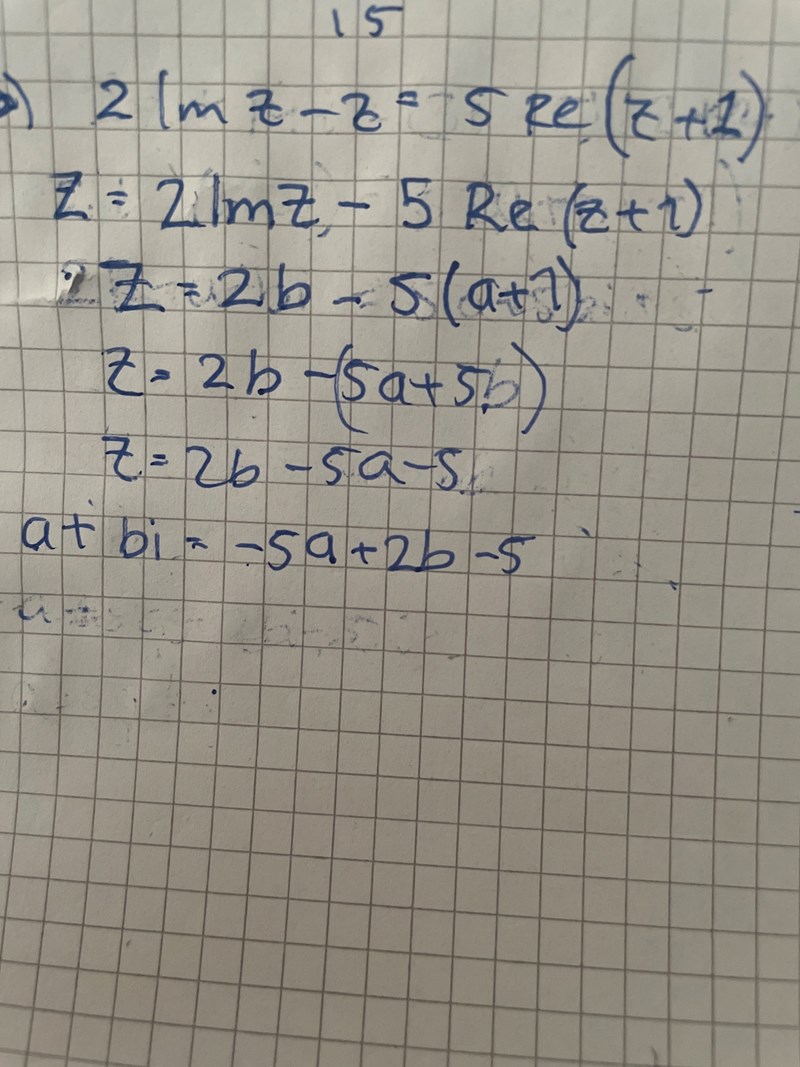 15
) 2 Im z - z = 5 Re (z+1)
z = 2 Im z - 5 Re (z+1)
z = 2b - 5(a+1)
z = 2b - (5a+5b)
z = 2b - 5a - 5
a + bi = -5a + 2b - 5